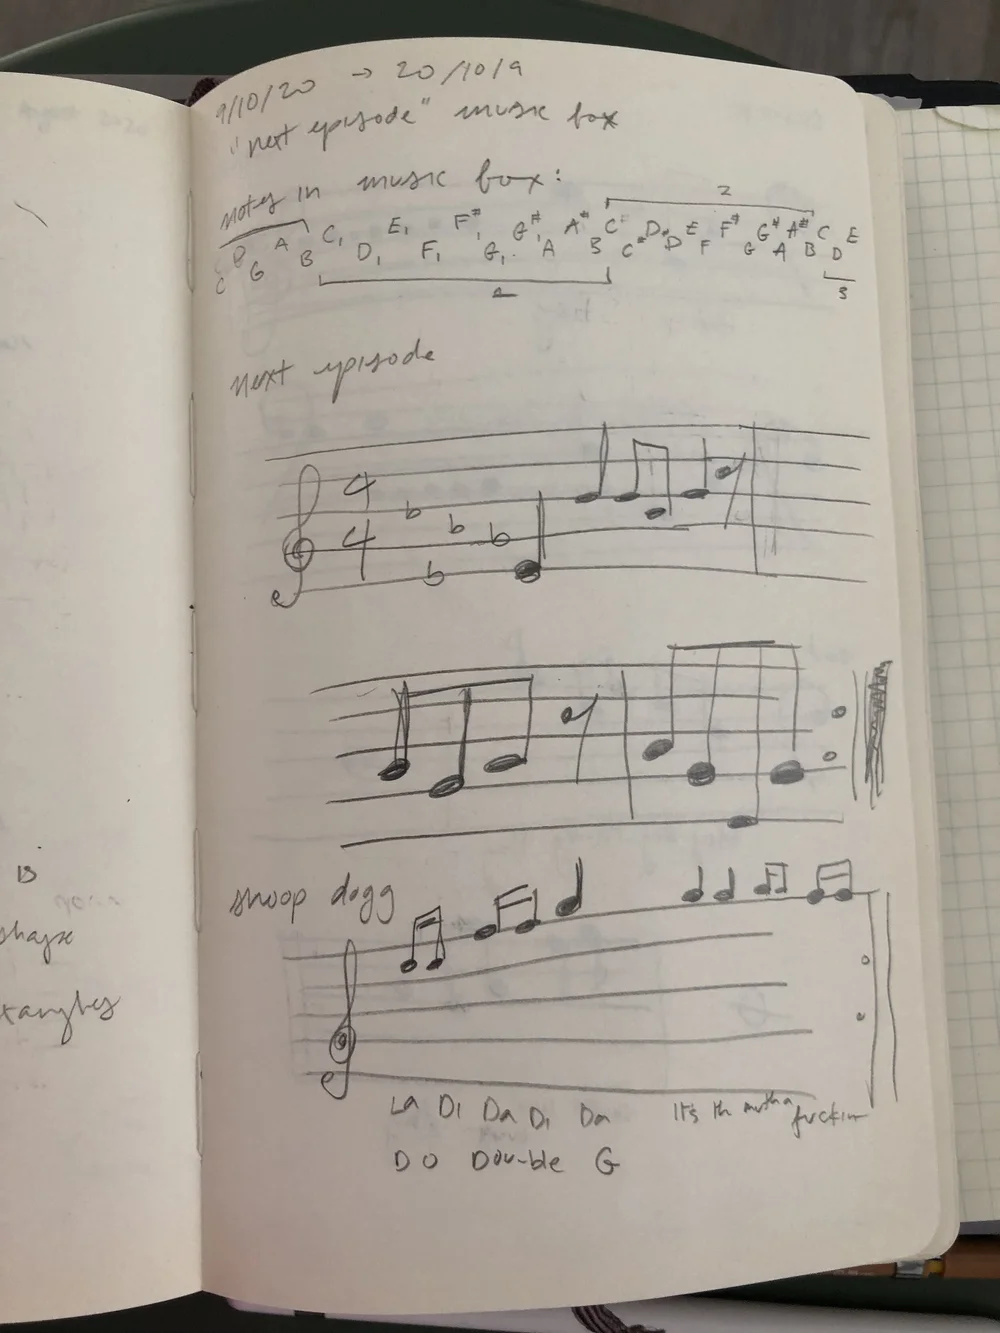 9/10/20 → 20/10/9
"next episode" music box
notes in music box:
2
C D G A B C₁ D₁ E₁ F₁ F#₁ G₁ G#₁ A A# B C C# D D# E F F# G G# A A# B C D E
3
next episode
4
4
snoop dogg
La Di Da Di Da It's th mutha fuckin
D O Dou-ble G
B
shape